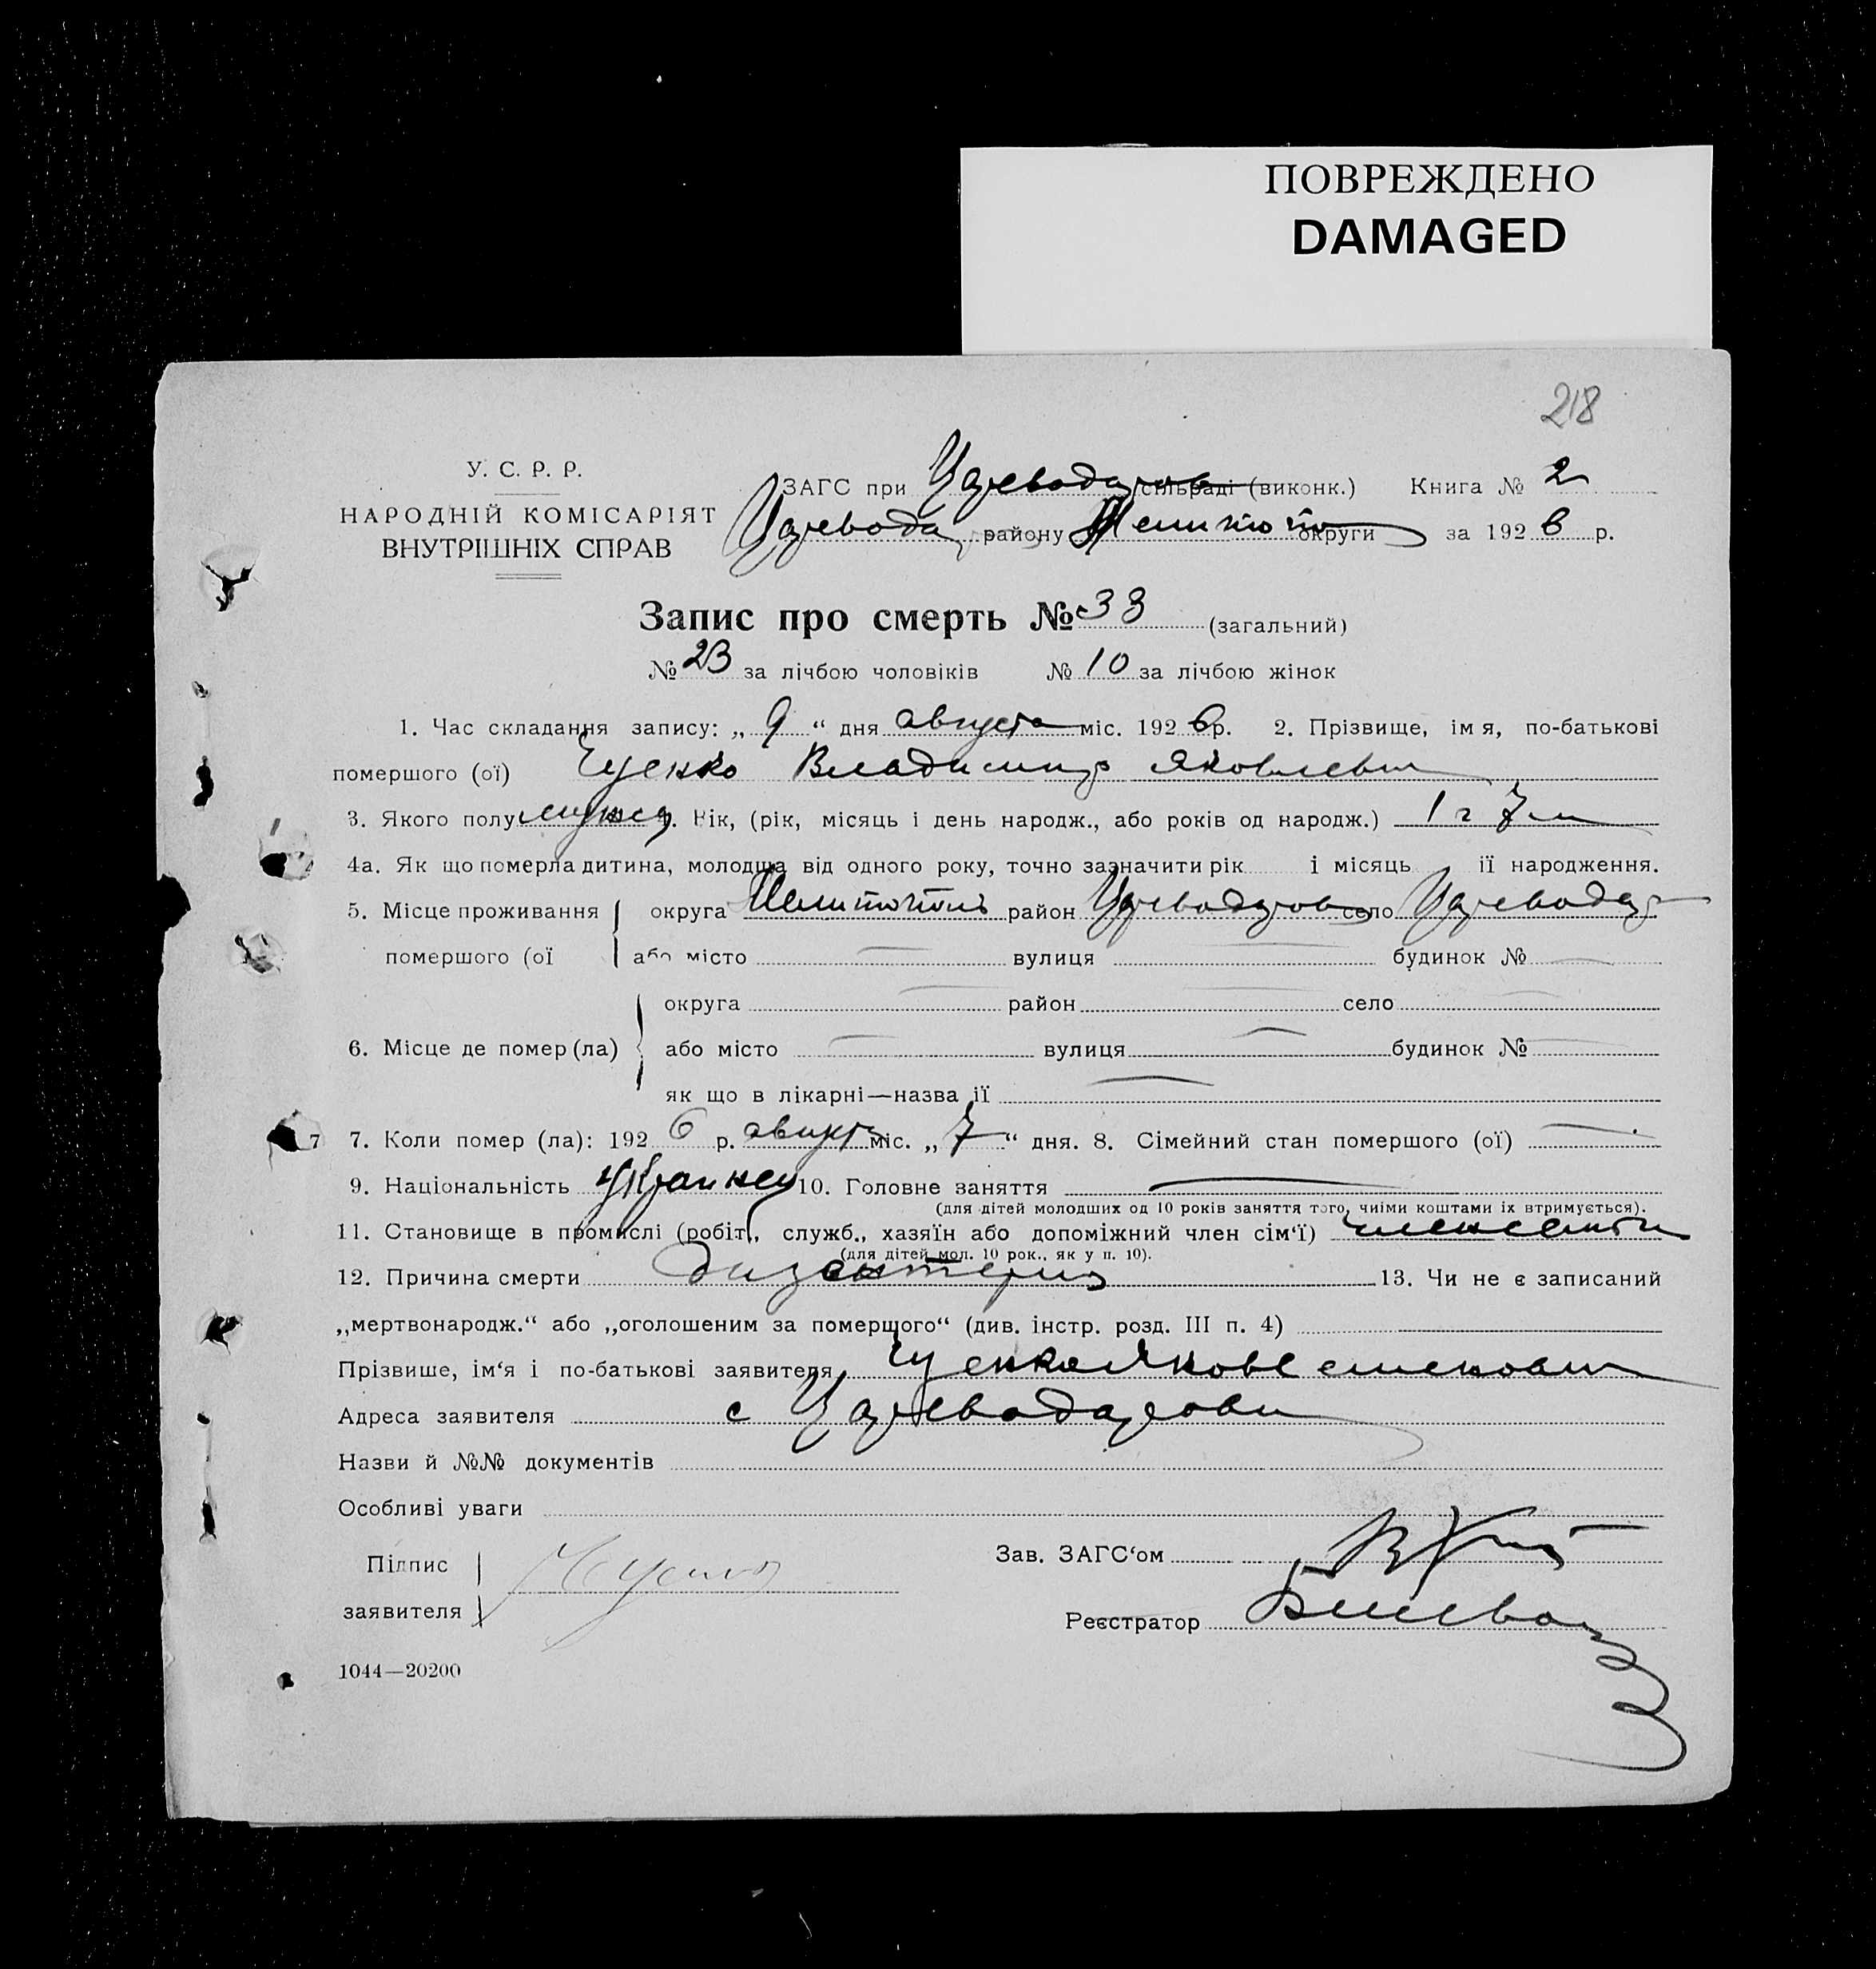 ПОВРЕЖДЕНО
DAMAGED
218
У. С. Р. Р.
НАРОДНІЙ КОМІСАРІЯТ
ВНУТРІШНІХ СПРАВ
ЗАГС при сільраді (виконк.) Книга № 2
району округи за 192 6 р.
Запис про смерть № 33 (загальний)
№ 23 за лічбою чоловіків № 10 за лічбою жінок
1. Час складання запису: „ 9 “ дня августа міс. 192 6 р. 2. Прізвище, ім я, по-батькові
помершого (ої) Владимир Яковлевич
3. Якого полу 4. Вік, (рік, місяць і день народж., або років од народж.) 1 г 7 м
4а. Як що померла дитина, молодша від одного року, точно зазначити рік і місяць ії народження.
5. Місце проживання округа район село
помершого (ої або місто — вулиця — будинок № —
округа — район — село —
6. Місце де помер (ла) або місто — вулиця — будинок № —
як що в лікарні—назва ії —
7 7. Коли помер (ла): 192 6 р. август міс. „ 7 “ дня. 8. Сімейний стан помершого (ої) —
9. Національність 10. Головне заняття —
(для дітей молодших од 10 років заняття того, чиїми коштами їх втримується).
11. Становище в промислі (робіт., служб., хазяїн або допоміжний член сім‘ї) член семьи
(для дітей мол. 10 рок., як у п. 10).
12. Причина смерти дизентерия 13. Чи не є записаний
„мертвонародж.“ або „оголошеним за помершого“ (див. інстр. розд. III п. 4)
Прізвише, ім‘я і по-батькові заявителя
Адреса заявителя с
Назви й №№ документів
Особливі уваги
Підпис Зав. ЗАГС‘ом
заявителя Реєстратор
1044—20200